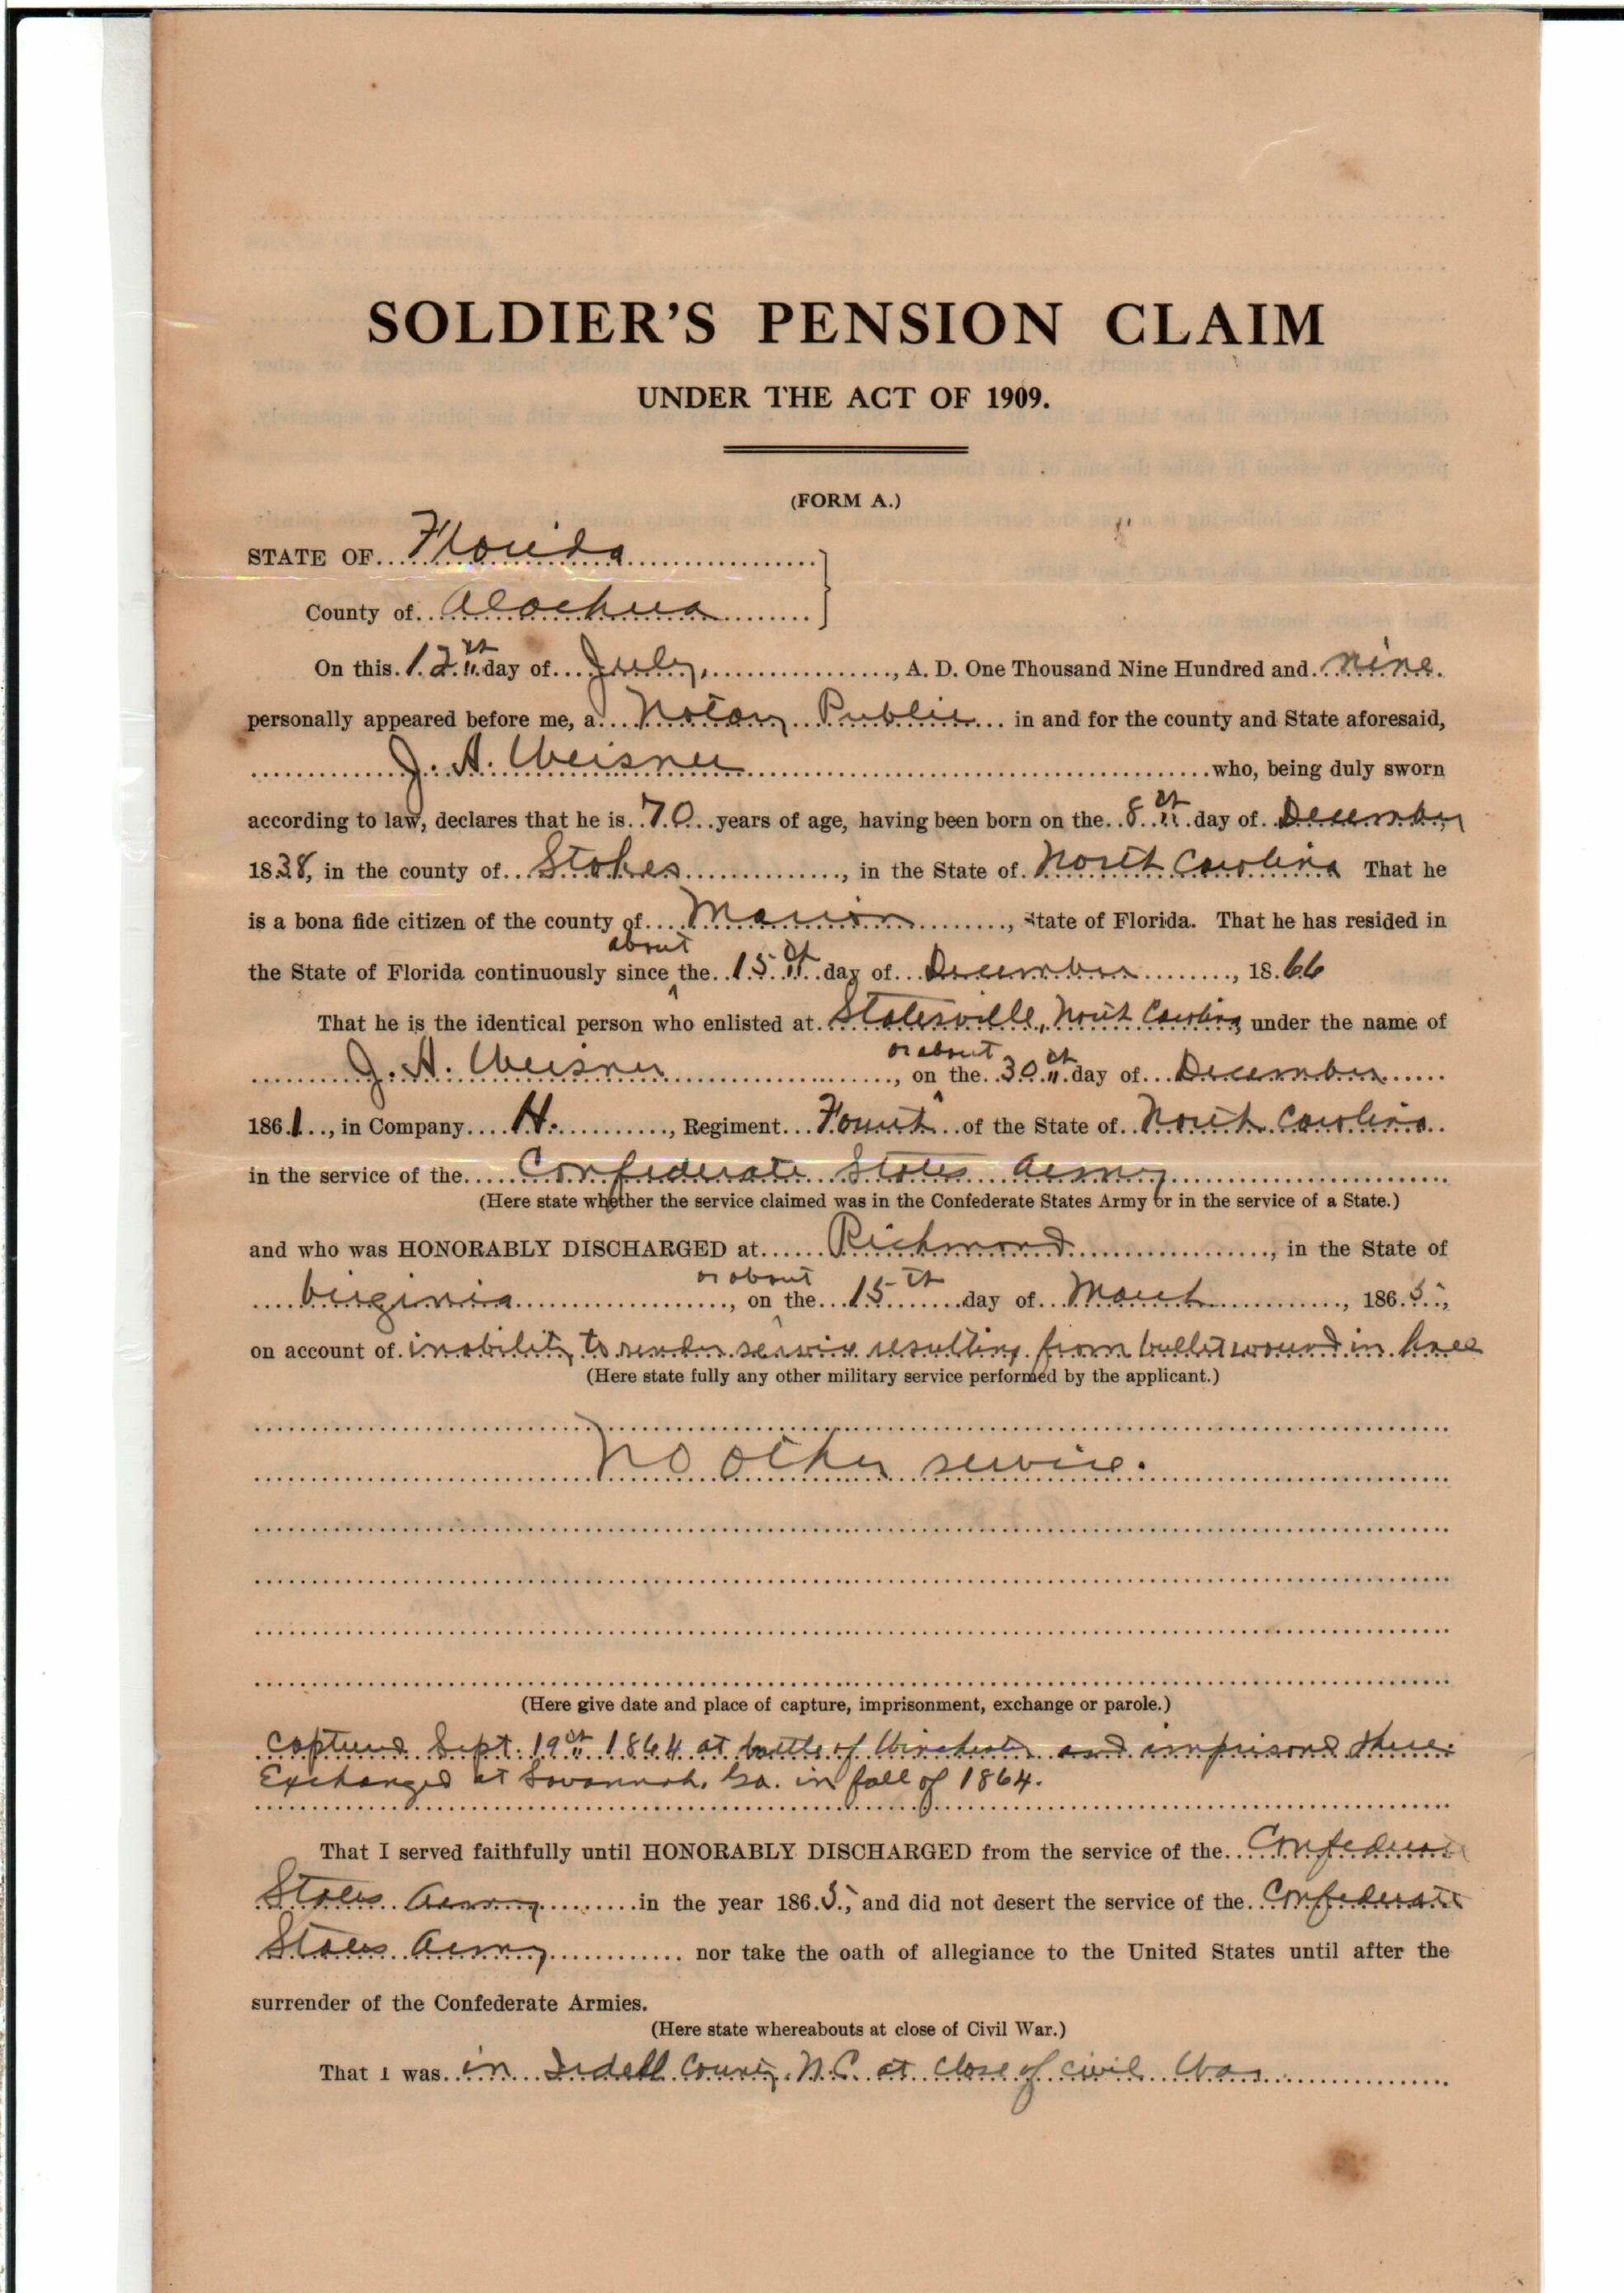 SOLDIER'S PENSION CLAIM
UNDER THE ACT OF 1909.
(FORM A.)
STATE OF Florida
County of Alachua
On this 12th day of July, A. D. One Thousand Nine Hundred and nine
personally appeared before me, a Notary Public in and for the county and State aforesaid,
J. A. Weisner who, being duly sworn
according to law, declares that he is 70 years of age, having been born on the 8th day of December
1838, in the county of Stokes, in the State of North Carolina That he
is a bona fide citizen of the county of Marion, State of Florida. That he has resided in
about
the State of Florida continuously since the 15th day of December, 1866
That he is the identical person who enlisted at Statesville, North Carolina under the name of
or about
J. A. Weisner, on the 30th day of December
1861, in Company H., Regiment Fourth of the State of North Carolina
in the service of the Confederate States Army
(Here state whether the service claimed was in the Confederate States Army or in the service of a State.)
and who was HONORABLY DISCHARGED at Richmond, in the State of
or about
Virginia, on the 15th day of March, 1865,
on account of inability to render service resulting from bullet wound in knee
(Here state fully any other military service performed by the applicant.)
No other service.
(Here give date and place of capture, imprisonment, exchange or parole.)
Captured Sept. 19th 1864 at battle of Winchester and imprisoned there.
Exchanged at Savannah, Ga. in fall of 1864.
That I served faithfully until HONORABLY DISCHARGED from the service of the Confederate
States Army in the year 1865, and did not desert the service of the Confederate
States Army nor take the oath of allegiance to the United States until after the
surrender of the Confederate Armies.
(Here state whereabouts at close of Civil War.)
That I was in Iredell County, N.C. at close of civil War